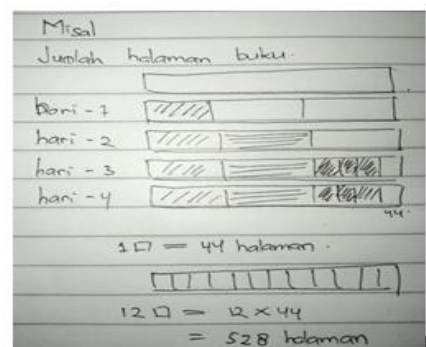 Misal
Jumlah halaman buku.
hari - 1
hari - 2
hari - 3
hari - 4
44.
1 □ = 44 halaman.
12 □ = 12 x 44
= 528 halaman